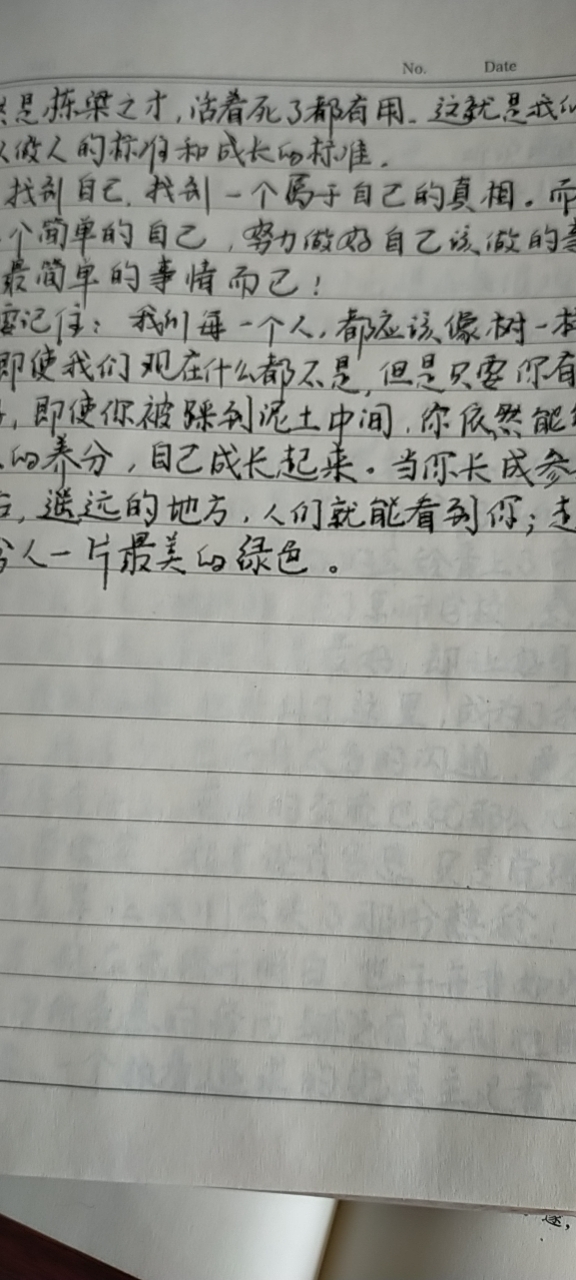 No. Date
是栋梁之才,活着死了都有用。这就是我们
做人的标准和成长的标准。
找到自己,找到一个属于自己的真相。而
个简单的自己,努力做好自己该做的事
最简单的事情而已!
要记住:我们每一个人,都应该像树一样
即使我们现在什么都不是,但是只要你有
,即使你被踩到泥土中间,你依然能
的养分,自己成长起来。当你长成参
后,遥远的地方,人们就能看到你;走
人一片最美的绿色。